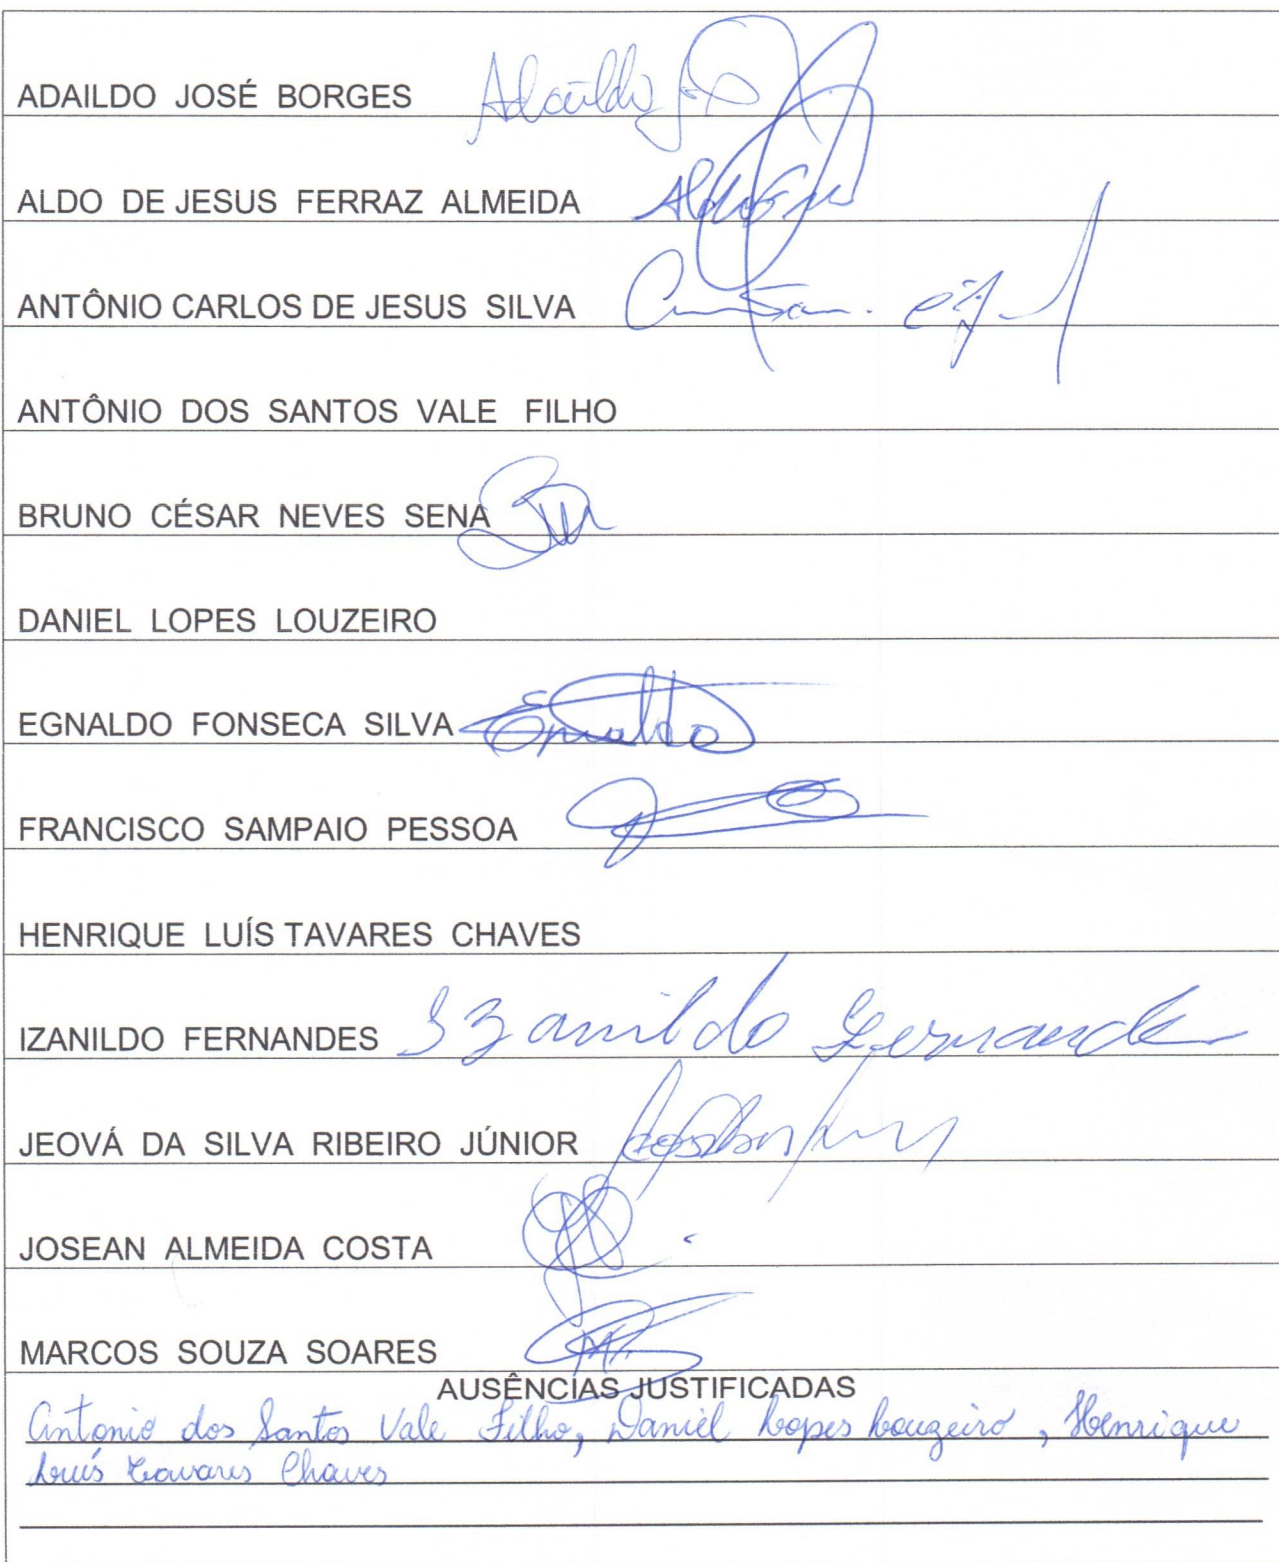 ADAILDO JOSÉ BORGES Adaildo
ALDO DE JESUS FERRAZ ALMEIDA
ANTÔNIO CARLOS DE JESUS SILVA
ANTÔNIO DOS SANTOS VALE FILHO
BRUNO CÉSAR NEVES SENA
DANIEL LOPES LOUZEIRO
EGNALDO FONSECA SILVA
FRANCISCO SAMPAIO PESSOA
HENRIQUE LUÍS TAVARES CHAVES
IZANILDO FERNANDES Izanildo Fernandes
JEOVÁ DA SILVA RIBEIRO JÚNIOR
JOSEAN ALMEIDA COSTA
MARCOS SOUZA SOARES
AUSÊNCIAS JUSTIFICADAS
Antonio dos Santos Vale Filho, Daniel Lopes Louzeiro, Henrique
Luís Tavares Chaves